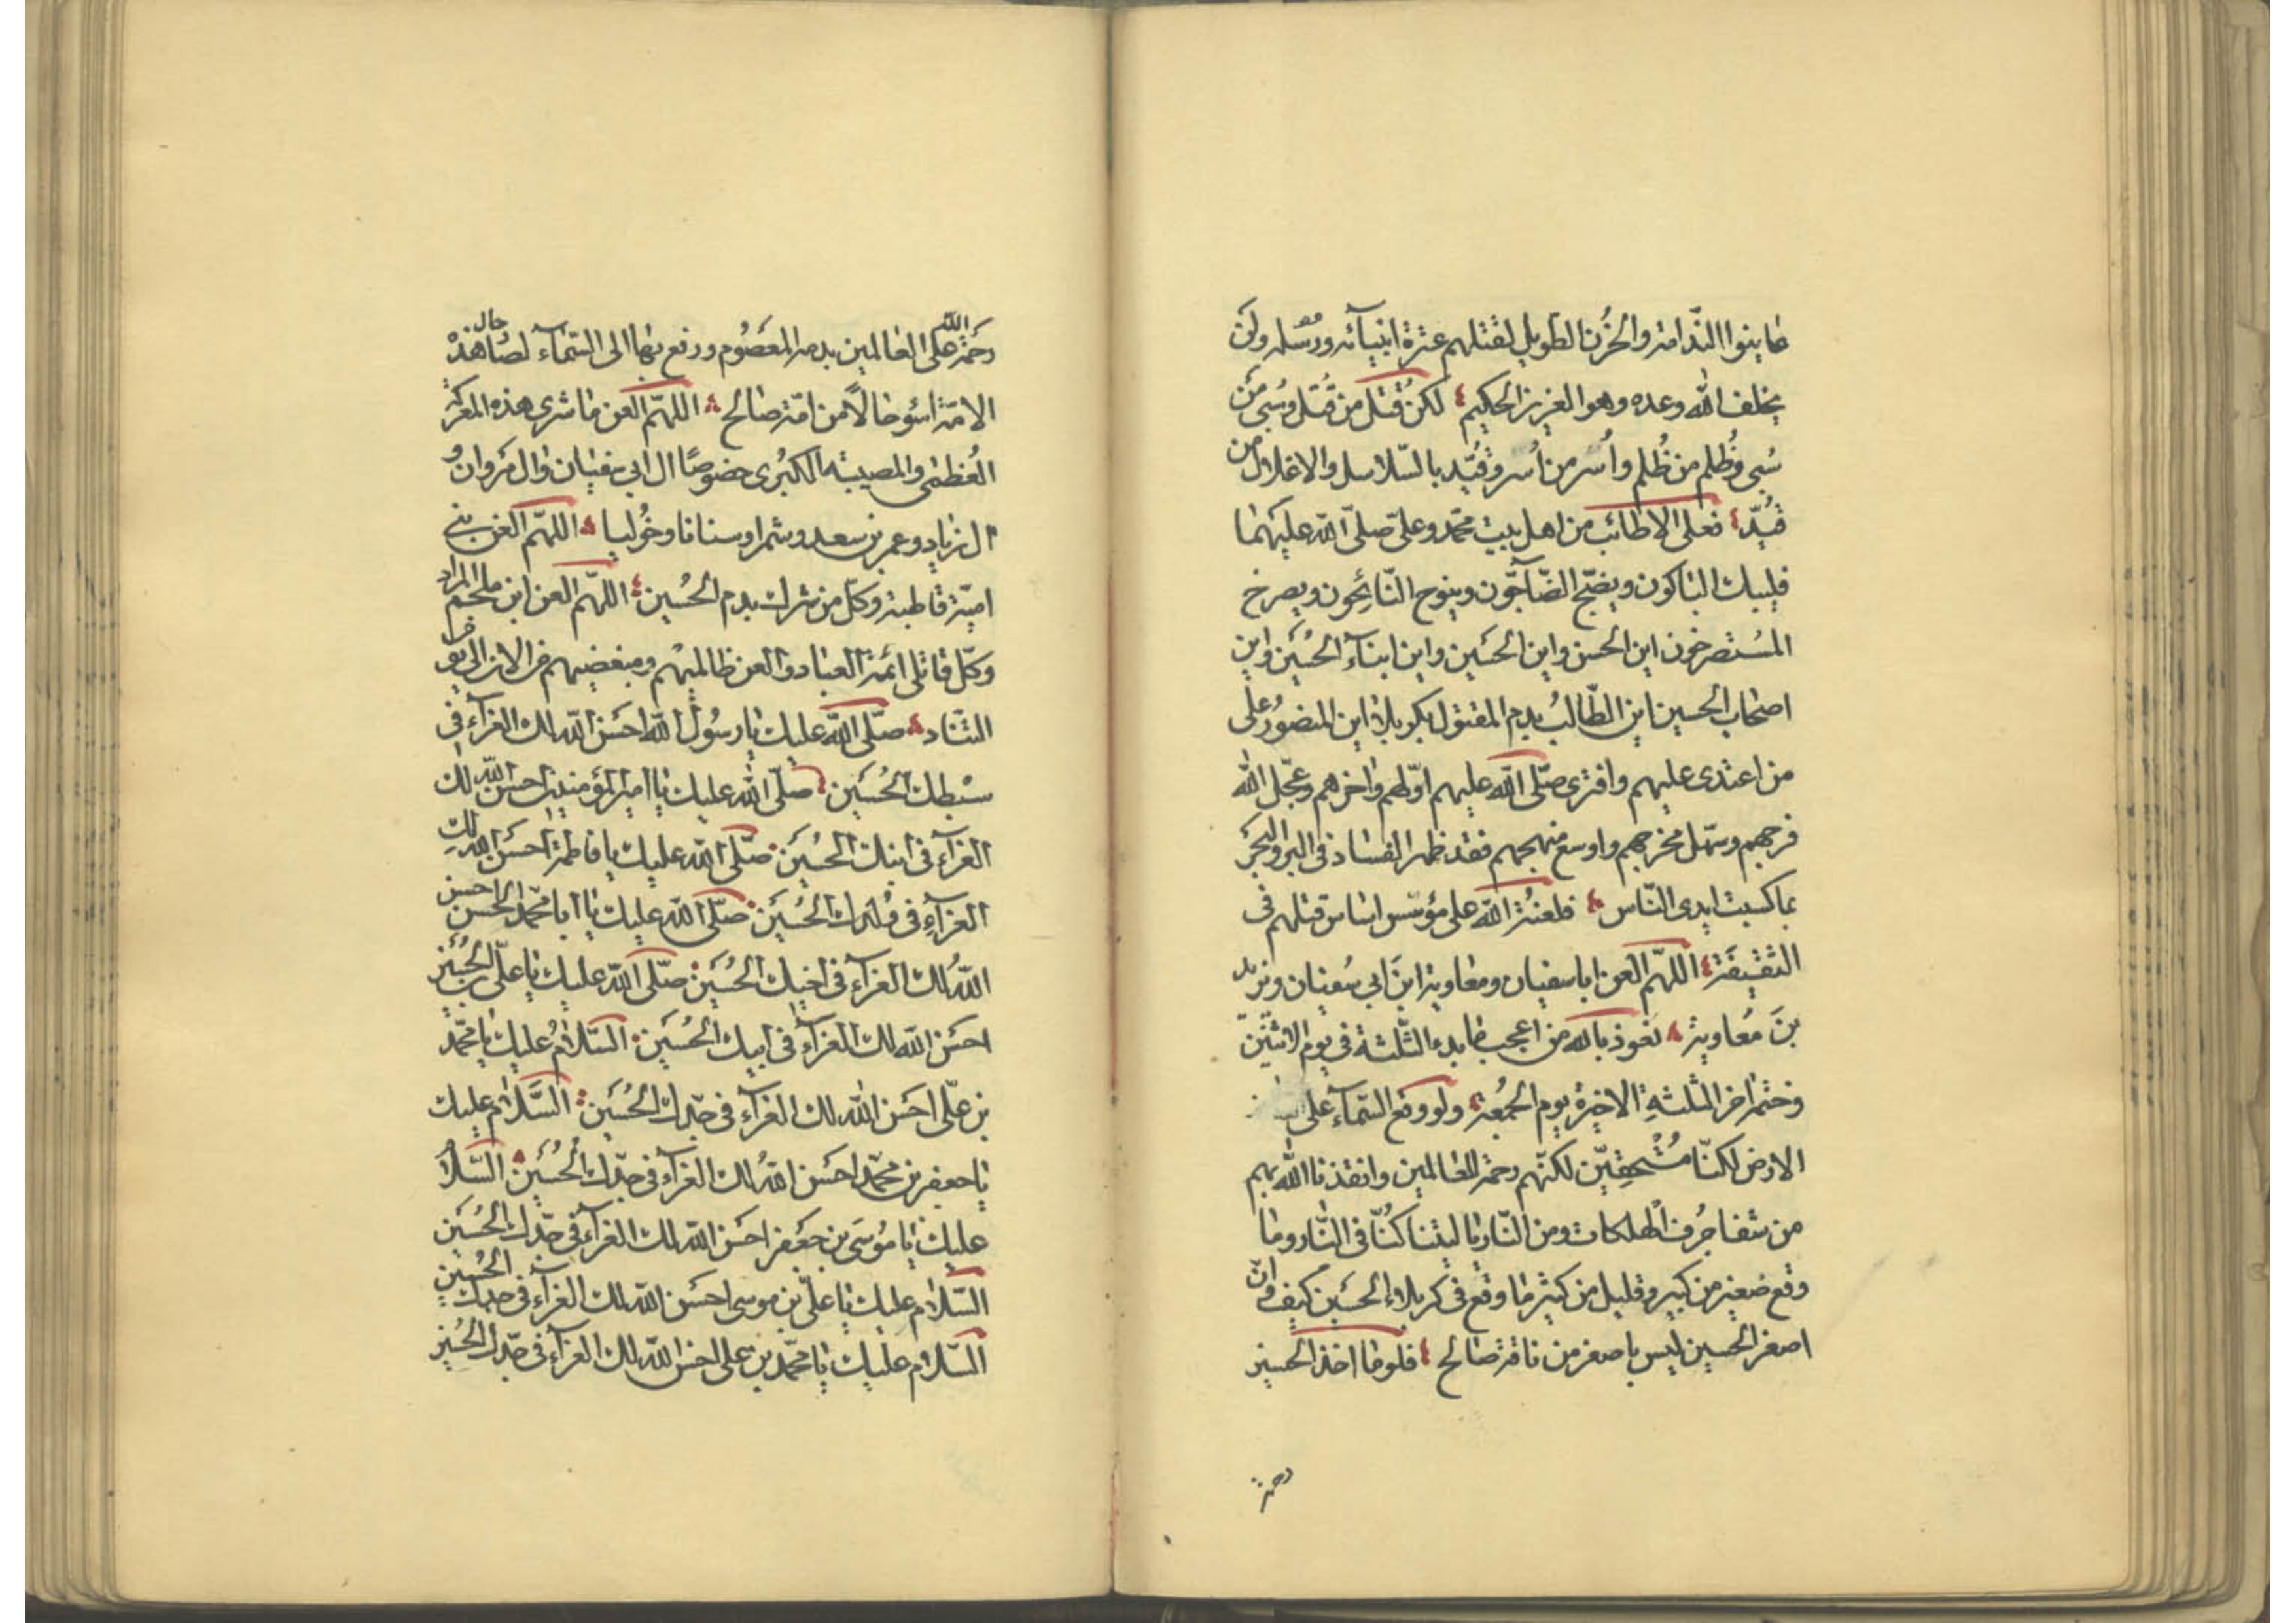 عاينوا النّدامة والحُزن الطويل لقتلهم عترة انبيآئه ورسله ولن
يخلف الله وعده وهو العزيز الحكيم لكن قُتل من قُتل وسُبى مَن
سُبى وظُلم من ظُلم واُسر من اُسر وقُيّد بالسّلاسل والاغلال من
قُيّد فعلى الاطائب من اهل بيت محمّد وعلىّ صلّى الله عليهما
فليبك الباكون ويضجّ الضّآجّون وينوح النّائِحون ويصرخ
المُستصرخون اين الحسن واين الحُسَين واين ابنآء الحُسَين واين
اصحاب الحسين اين الطّالبُ بدم المقتول بكربلا اين المنصُور على
من اعتدى عليهم وافترى صلّى الله عليهم اوّلهم واخرهم وعجّل الله
فرجهم وسهّل مخرجهم واوسع منهجهم فقد ظهر الفساد فى البر والبَحَر
بما كسبت ايدى النّاس فلعنةُ الله على مؤسّس اساس قتلهم فى
الثقيفَة اللهمّ العن ابا سفيان ومعاوية ابنَ ابى سُفيان ويزيد
بنَ مُعاوية نعوذ بالله من اعجب ما بدء الثّلثة فى يوم الاثنَين
وختم اخر الثلثهِ الاخيرة يوم الجُمعة ولو وقع السّمآء على
الارض لكنّا مُسْتحِقّين لكنّهم رحمة للعالمين وانقذنا الله بهم
من شفا جُرف الهلكات ومن النّار يا ليتنا كُنّا فى النّار وما
وقع صَغير من كبير وقليل من كثير ما وقع فى كربلاء الحسَين كيف وانّ
اصغر الحسين ليس باصغر من ناقة صالح فلو ما اخذ الحسين
رحمة
رحَمة الله عَلى العالمين بدمه المعصُوم ورفع بها الى السّمآء لصار حال هذه
الامّة اسُوء حالاً من امّة صالح اللهمّ العن ما شرى هذه المعركة
العُظمى والمصيبة الكبُرى خصُوصًا ال ابى سفيان وال مَروان و
ال زياد وعمر بن سعد وشمرا وسنانا وخُوليا اللهمّ العن بنى
اميّة قاطبة وكلّ من شرك بدم الحُسين اللهمّ العن ابن ملجم المراد
وكلّ قاتلى ائمّة العباد والعن ظالميهم ومبغضيهم من الان الى يوم
التّناد صلّى الله عليك يا رسُول الله احسَن الله لك العزآء فى
سبْطك الحُسَين صلّى الله عليك يا امير المؤمنين احسن الله لك
العزآء فى ابنك الحسَين صلّى الله عليك يا فاطمة احسَن الله لكِ
العزآءِ فى ولدك الحُسَين صلّى الله عليك يا ابا محمّد الحسن احسن
اللهُ لك العزآء فى اخيك الحُسَين صلّى الله عليك يا علىّ بن الحُسَين
احسَن الله لك العزآء فى ابيك الحُسَين السّلامُ عليك يا محمّد
بن علّى احسَن الله لك العزآء فى جدّك الحُسَين السَّلام عليك
يا جعفر بن محمّد احسَن اللهُ لك العزآء فى جدّك الحُسَين السّلامُ
عليك يا مُوسَى بن جعَفر احسَن الله لك العزآء فى جدّك الحُسَين
السّلام عليك يا علىّ بن موسى احسَن الله لك العزآء فى جدك الحُسَين
السّلام عليك يا محمّد بن على احسن الله لك العزآء فى جدّك الحُسَين